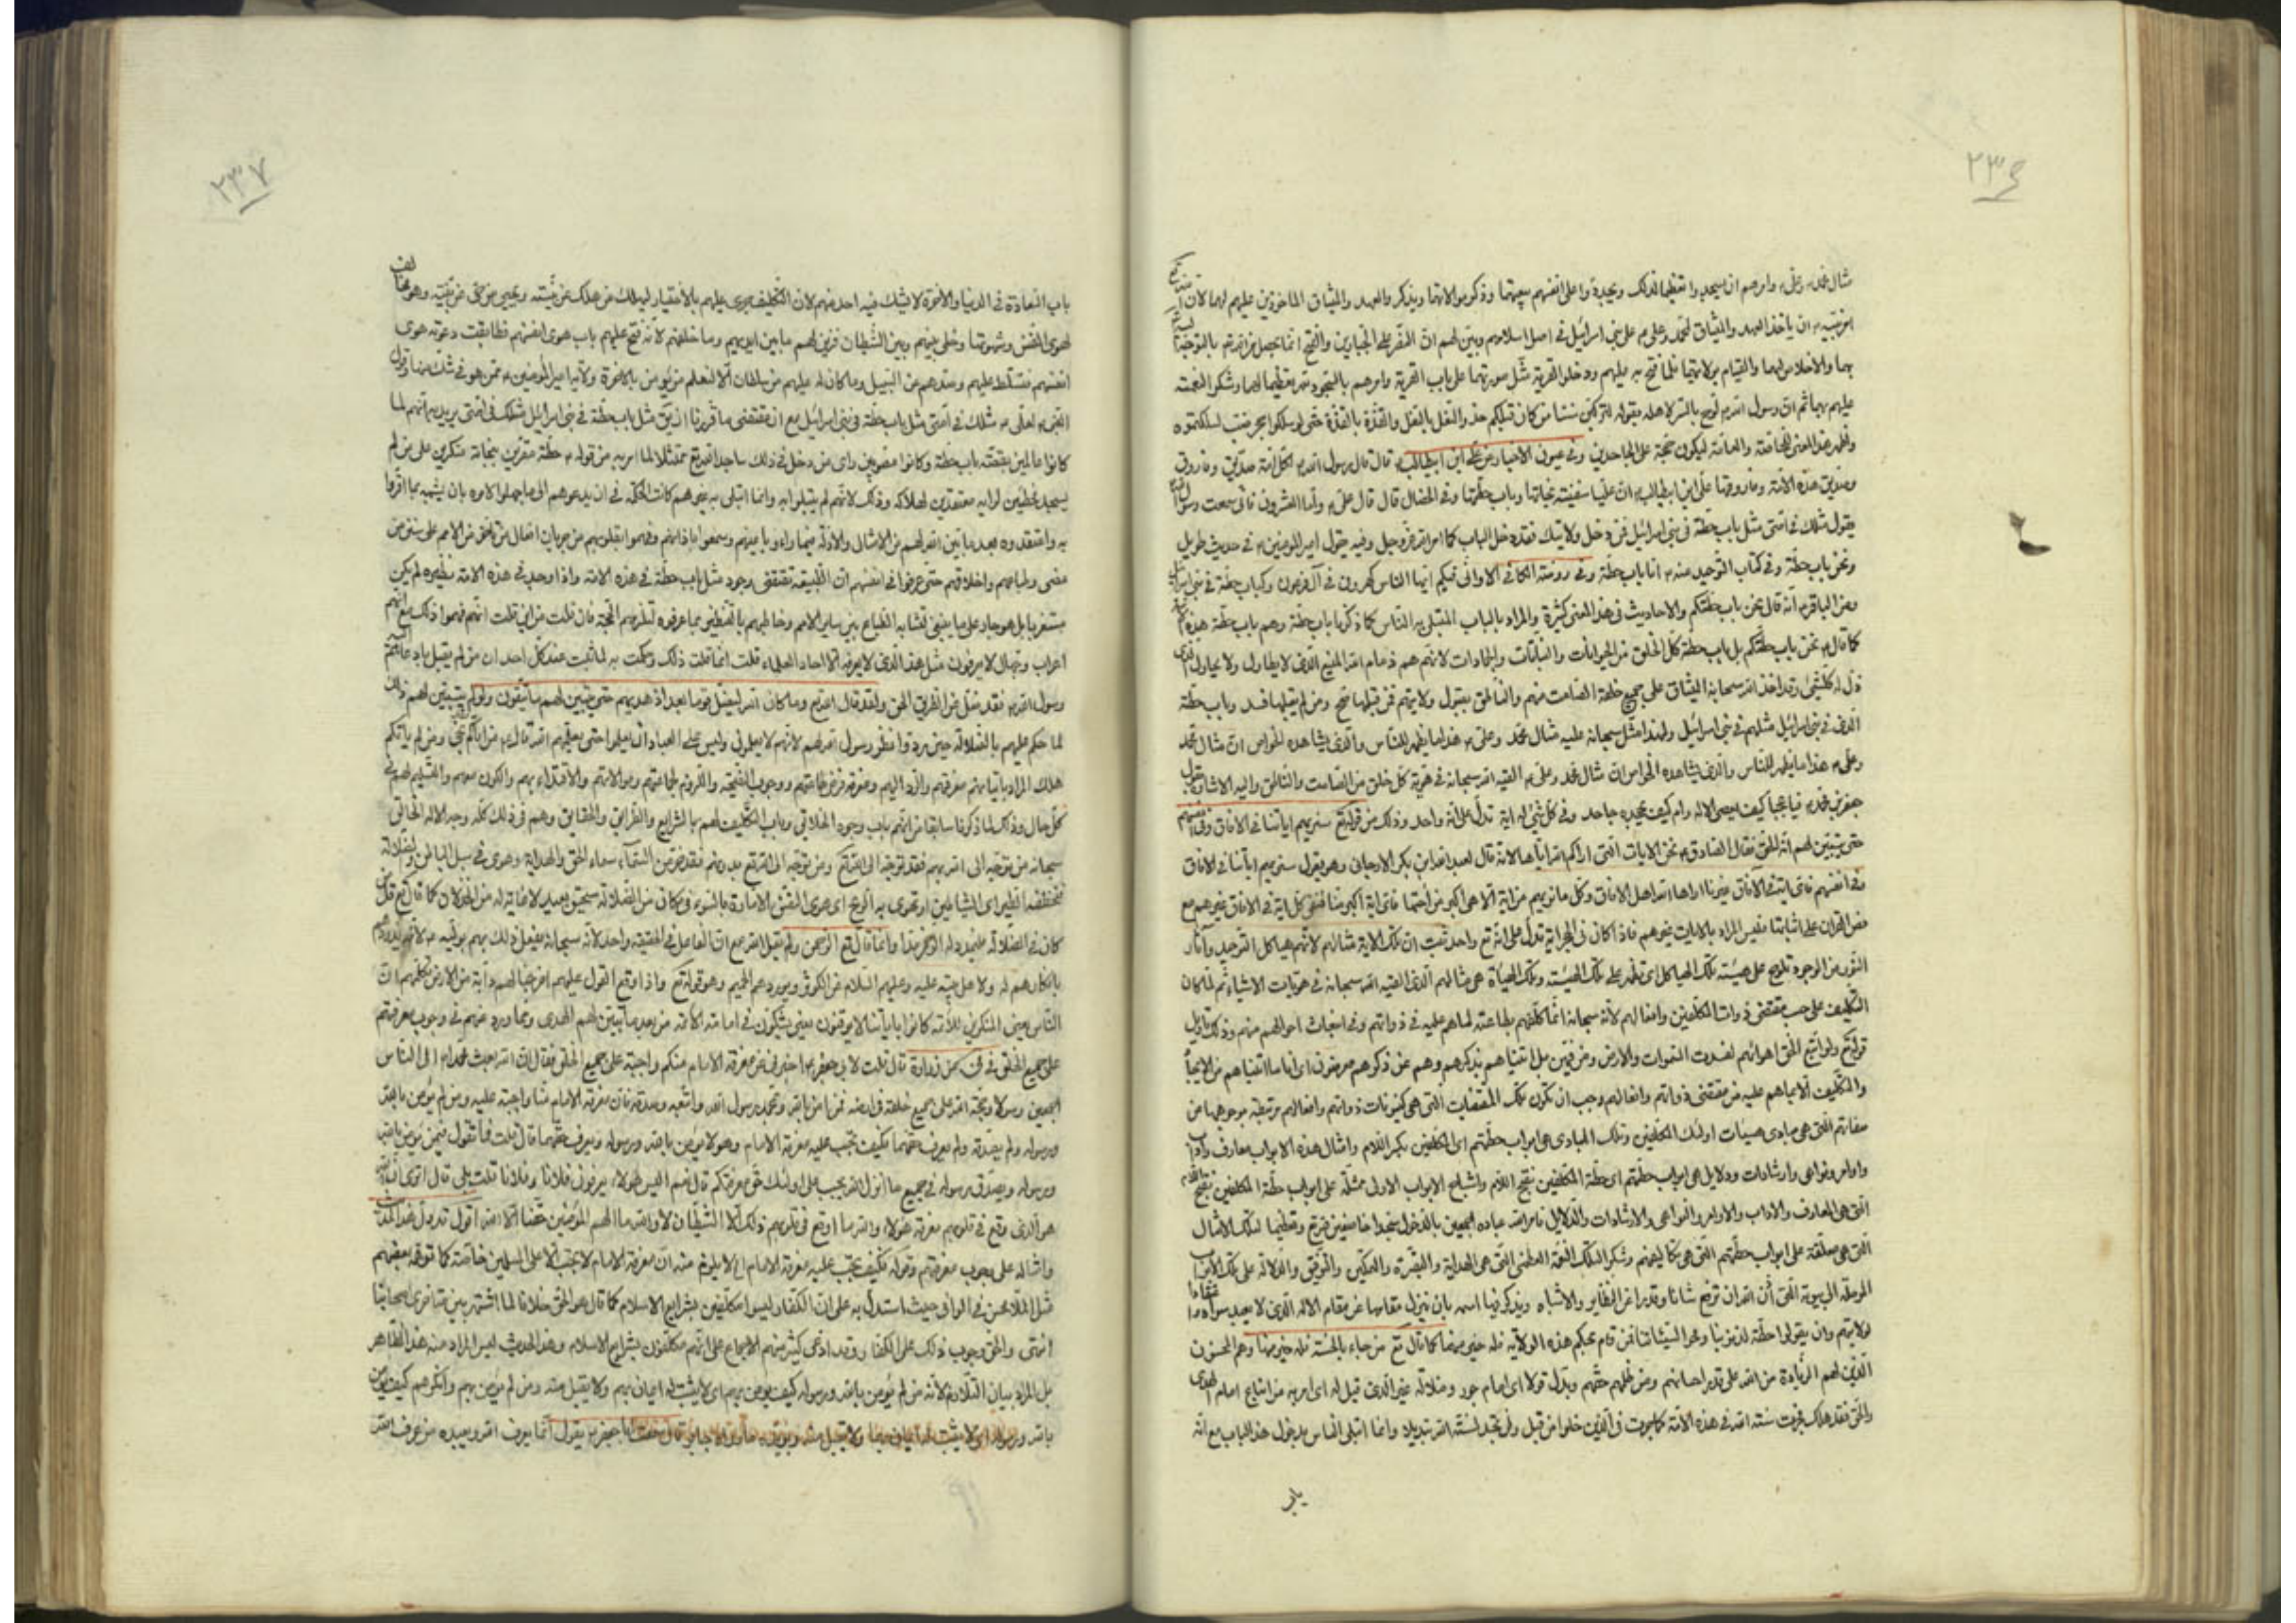 ٢٣٦
مثال محمد وعلي وامرهم ان يسجدوا تعظيما لذلك ويجددوا على انفسهم بيعتهما وذكر موالاتهما ويذكروا العهد والميثاق الماخوذين عليهم لهما لان
امر نبيه ان ياخذ العهد والميثاق لمحمد وعلي على بني اسرائيل في اصل اسلامهم وبين لهم ان الظفر على الجبارين والفتح انما يحصل
بهما والاخلاص لهما والقيام بولايتهما فلما فتح عليهم ودخلوا القرية مثل صورتهما على باب القرية وامرهم بالسجود تعظيما لهما وشكرا لنعمته
عليهم بهما ثم ان رسول الله لوح بالسر لاهله بقوله لتركبن سنن من كان قبلكم حذو النعل بالنعل والقذة بالقذة حتى لو سلكوا جحر ضب لسلكتموه
واظهر هذا المعنى للخاصة والعامة ليكون حجة على الجاحدين وفي عيون الاخبار عن علي ابن ابيطالب قال قال رسول الله لكل امة صديق وفاروق
وصديق هذه الامة وفاروقها علي ابن ابيطالب ان عليا سفينة نجاتها وباب حطتها وفي الخصال قال قال علي واما العشرون فاني سمعت رسول الله
يقول مثلك في امتي مثل باب حطة في بني اسرائيل فمن دخل ولايتك فقد دخل الباب كما امر الله عز وجل وفيه يقول امير المؤمنين في حديث طويل
ونحن باب حطة وفي كتاب التوحيد عنه انا باب حطة وفي روضة الكافي الا واني فيكم ايها الناس كهرون في آل فرعون وكباب حطة في بني اسرائيل
وعن الباقر انه قال نحن باب حطتكم والاحاديث في هذا المعنى كثيرة والمراد بالباب المبتلى به الناس كما ذكرنا باب حطة وهم باب حطة هذه
كما قال نحن باب حطتكم بل باب حطة كل الخلق من الحيوانات والنباتات والجمادات لانهم هم ذمام الله المنيع الذي لا يطاول ولا يحاول الذي
ذل له كلشيء وقد اخذ الله سبحانه الميثاق على جميع خلقه الصامت منهم والناطق بقبول ولايتهم فمن قبلها صح ومن لم يقبلها فسد وباب حطة
الذي في بني اسرائيل مثلهم في بني اسرائيل ولهذا مثل سبحانه عليه مثال محمد وعلي هذا ما يظهر للناس والذي يشاهده الخواص ان مثال محمد
وعلي هذا ما يظهر للناس والذي يشاهده الخواص ان مثال محمد وعلي القيه الله سبحانه في هوية كل خلق من الصامت والناطق واليه الاشارة بقول
جعفر بن محمد فيا عجبا كيف يعصى الاله ام كيف يجحده جاحد وفي كل شيء له اية تدل على انه واحد وذلك من قوله تع سنريهم اياتنا في الافاق وفي انفسهم
حتى يتبين لهم انه الحق فقال الصادق نحن الايات التي اراكم الله اياها لانه قال لعبد الله ابن بكر الارجاني وهو يقول سنريهم اياتنا في الافاق
وفي انفسهم فاي اية في الافاق غيرنا اراها الله اهل الافاق وكل ما نريهم من اية الا هي اكبر من اختها فاي اية اكبر منا
النور من الوجود تلوح على هيئة تلك الهياكل اي تظهر على تلك الهيئة وتلك الهيأة هي مثالهم الذي القيه الله سبحانه في هويات الاشياء ثم لما كان
التكليف على حسب مقتضى ذوات المكلفين وافعالهم لانه سبحانه انما كلفهم بطاعته لما هم عليه في ذواتهم وفي انبعاث احوالهم منهم وذلك تاويل
قوله تع ولو اتبع الحق اهوائهم لفسدت السموات والارض ومن فيهن بل اتيناهم بذكرهم وهم عن ذكرهم معرضون
والتكليف الا بما هم عليه من مقتضى ذواتهم وافعالهم وجب ان تكون تلك المقتضيات التي هي كينونات ذواتهم وافعالهم مرتبطة بوجوهها من
صفاتهم التي هي مبادي هيئات اولئك المكلفين وتلك المبادي هي ابواب حطتهم اي المكلفين بكسر اللام وامثال هذه الابواب معارف واداب
واوامر ونواهي وارشادات ودلايل هي ابواب حطتهم اي حطة المكلفين بفتح اللام واشباح الابواب الاول ممثلة على ابواب حطة المكلفين بفتح اللام
التي هي المعارف والاداب والاوامر والنواهي والارشادات والدلايل فامر الله عباده اجمعين بالدخول سجدا خاضعين لله تع وتعظيما لتلك الامثال
التي هي معلقة على ابواب حطتهم التي هي تكاليفهم وشكرا لتلك النعمة العظمى التي هي الهداية والتبصرة والتمكين والتوفيق والدلالة على تلك الابواب
الموصلة الى بيوته التي اذن الله ان ترفع شانا وقدرا عن النظاير والاشباه ويذكر فيها اسمه بان ينزل مقامها عن مقام الاله الذي لا يعبد سواه
لولايتهم وان يقولوا حطة لذنوبنا ومحوا لسيئاتنا فمن قام بحكم هذه الولاية فله خير منها كما قال تع من جاء بالحسنة فله خير منها وهم المحسنون
الذين لهم الزيادة من الله على قدر احسانهم ومن ظلمهم حقهم وبدل قولا اي امام جور وضلالة غير الذي قيل له اي امر به من اتباع امام الهدى
والحق فقد هلك فجرت سنة الله في هذه الامة كما جرت في الذين خلوا من قبل ولن تجد لسنة الله تبديلا وانما ابتلى الناس بدخول هذا الباب مع انه
باب
٢٣٧
باب السعادة في الدنيا والاخرة لا يشك فيه احد منهم لان التكليف جرى عليهم بالاختيار ليهلك من هلك عن بينة ويحيى من حي عن بينة وهو مخالف
لهوى النفس وشهوتها وخلى بينهم وبين الشيطان فزين لهم ما بين ايديهم وما خلفهم لانه فتح عليهم باب هوى انفسهم فطابقت دعوته هوى
انفسهم فتسلط عليهم وصدهم عن السبيل وما كان له عليهم من سلطان الا لنعلم من يؤمن بالاخرة ولاية امير المؤمنين ممن هو في شك منها وقول
النبي لعلي مثلك في امتي مثل باب حطة في بني اسرائيل مع ان مقتضى ما قررنا ان يق مثل باب حطة في بني اسرائيل مثلك في امتي يريد به انهم لما
كانوا عالمين بقصة باب حطة وكانوا مصوبين راى من دخل في ذلك ساجدا لله تع ممتثلا لما امر به من قوله حطة مقرين بنجاته منكرين على من لم
يسجد مخطئين لرايه معتقدين لهلاكه وذلك لانهم لم يبتلوا به وانما ابتلى به غيرهم كانت الحكمة في ان يدعوهم الى ما جهلوا كامره بان يشبهه بما اقروا
به واعتقدوه بعد ما بين الله لهم من الامثال والادلة فيما راوه باعينهم وسمعوا باذانهم وفهموا بقلوبهم من جريان افعال من تاخر من الامم على سنن من
مضى وطباعهم واخلاقهم حتى عرفوا في انفسهم ان الطبيعة تقتضي وجود مثل باب حطة في هذه الامة واذا وجد في هذه الامة نظيره لم يكن
مستغربا بل هو جار على ما ينبغي لتشابه الطباع بين ساير الامم وخاطبهم بالتفطين بما عرفوه لتلزمهم الحجة فان قلت من اين قلت انهم فهموا ذلك مع انهم
اعراب وجهال لا يعرفون مثل هذا الذي لا يعرفه الا احاد العلماء قلت انما قلت ذلك وحكمت به لما ثبت عند كل احد ان من لم يقبل
رسول الله فقد ضل عن الطريق الحق ولقد قال الله تع وما كان الله ليضل قوما بعد اذ هديهم حتى يبين لهم ما يتقون ولو لم يتبين لهم ذلك
لما حكم عليهم بالضلالة حين ردوا نظر رسول الله لهم لانهم لا يعلمون وليس على العباد ان يعلموا حتى يعلمهم الله قال من اتاكم نجى ومن لم ياتكم
هلك المراد باتيانهم معرفتهم والرد اليهم ومعرفة فرض طاعتهم ووجوب النصيحة واللزوم لجماعتهم وموالاتهم والاقتداء بهم والكون معهم والتسليم لهم في
كل حال وذلك لما ذكرنا سابقا من انهم باب وجود الخلائق وباب التكليف لهم بالشرايع والطرايق والحقايق وهم في ذلك كله وجه الاله الخالق
سبحانه من توجه الى الله بهم فقد توجه الى الله تع ومن توجه الى الله تع بدونهم فقد خر من السماء سماء الحق والهداية وهوى في سبل الباطل والضلالة
فتخطفه الطير اي الشياطين او تهوي به الريح اي هوى النفس الامارة بالسوء في مكان من الضلالة سحيق بعيد لا غاية له من الخذلان كما قال تع قل من
كان في الضلالة فليمدد له الرحمن مدا وانما قال تع الرحمن ولم يقل الله مع ان الفاعل في الحقيقة واحد لانه سبحانه يفعل ذلك بهم بوليه
بانكارهم له ولاهل بيته عليه وعليهم السلام عن الكوثر ويوردهم الحميم وهو قوله تع واذا وقع القول عليهم اخرجنا لهم دابة من الارض تكلمهم ان
الناس يعني المنكرين للائمة كانوا باياتنا لا يوقنون يعني يشكون في امامة الائمة من بعد ما تبين لهم الهدى ومما ورد عنهم في وجوب معرفتهم
على جميع الخلق في في عن زرارة قال قلت لابي جعفر اخبرني عن معرفة الامام منكم واجبة على جميع الخلق فقال ان الله بعث محمدا الى الناس
اجمعين رسولا وحجة لله على جميع خلقه في ارضه فمن امن بالله وبمحمد رسول الله واتبعه وصدقه فان معرفة الامام منا واجبة عليه ومن لم يؤمن بالله
ورسوله ولم يصدقه ولم يعرف حقهما فكيف تجب عليه معرفة الامام وهو لا يؤمن بالله ورسوله ويعرف حقهما قال قلت فما تقول فيمن يؤمن بالله
ورسوله ويصدق رسوله في جميع ما انزل الله يجب على اولئك حق معرفتكم قال نعم اليس هؤلاء يعرفون فلانا وفلانا قلت بلى قال اترى ان الله
هو الذي وقع في قلوبهم معرفة هؤلاء والله ما اوقع في قلوبهم ذلك الا الشيطان لا والله ما الهم المؤمنين حقنا الا الله اقول
وامثاله على وجوب معرفتهم وقوله فكيف تجب عليه معرفة الامام الخ لا يلزم منه ان معرفة الامام لا تجب الا على المسلمين خاصة كما توهمه بعضهم
مثل الملا محسن في الوافي حيث استدل به على ان الكفار ليسوا مكلفين بشرايع الاسلام كما قال هو الحق خلافا لما اشتهر بين متاخري اصحابنا
انتهى والحق وجوب ذلك على الكفار وقد ادعى كثير منهم الاجماع على انهم مكلفون بشرايع الاسلام وهذا الحديث ليس المراد منه هذا الظاهر
بل المراد بيان التلازم لانه من لم يؤمن بالله ورسوله كيف يؤمن بهم اي لا يثبت له ايمان بهم ولا يقبل منه ومن لم يؤمن بهم وانكرهم كيف يؤمن
بالله ورسوله اي لا يثبت له ايمان بهما ولا يقبل منه جابر قال سمعت ابا جعفر يقول انما يعرف الله ويعبده من عرف الله